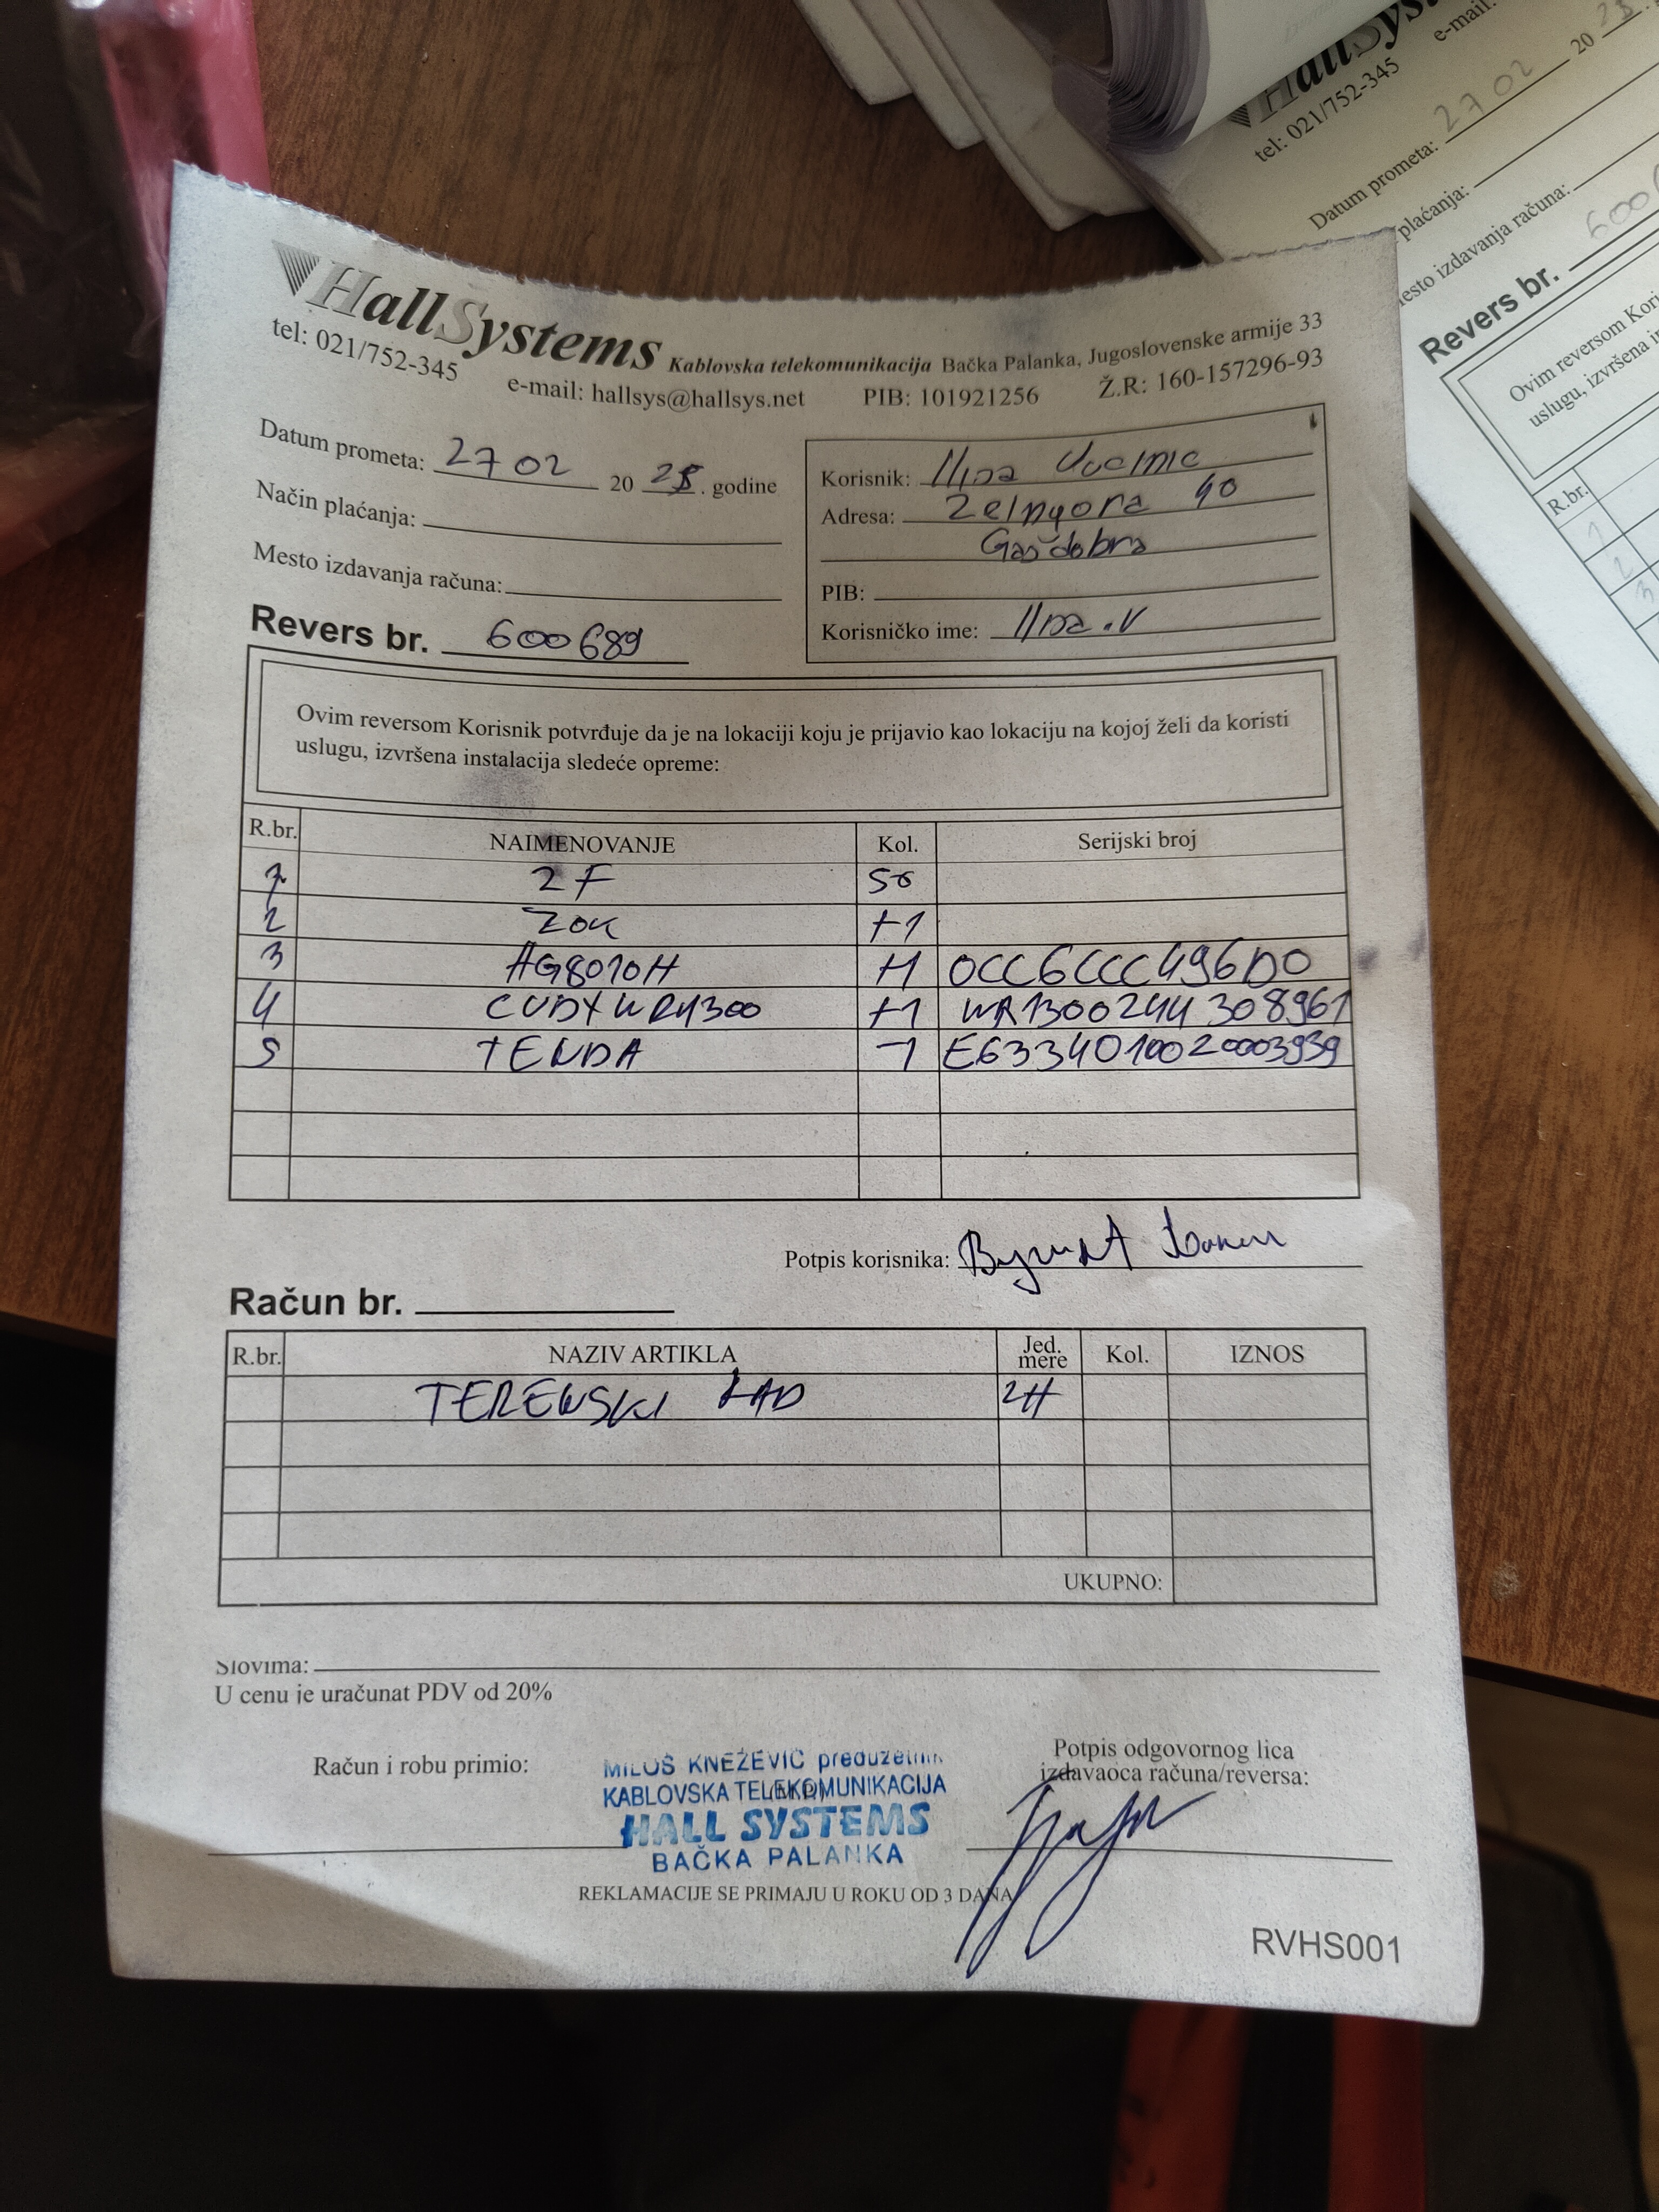 HallSystems Kablovska telekomunikacija Bačka Palanka, Jugoslovenske armije 33
tel: 021/752-345 e-mail: hallsys@hallsys.net PIB: 101921256 Ž.R: 160-157296-93
Datum prometa: 27 02 20 25. godine
Način plaćanja:
Mesto izdavanja računa:
Revers br. 600689
Korisnik:
Adresa: 40
PIB:
Korisničko ime:
Ovim reversom Korisnik potvrđuje da je na lokaciji koju je prijavio kao lokaciju na kojoj želi da koristi
uslugu, izvršena instalacija sledeće opreme:
R.br. NAIMENOVANJE Kol. Serijski broj
1 2F 50
2 ZOK +1
3 AG8010H +1 0CC6CCC496D0
4 CUDY WR1300 +1 WR1300244308961
5 TENDA -1 E6334010020003939
Potpis korisnika:
Račun br.
R.br. NAZIV ARTIKLA Jed. mere Kol. IZNOS
TERENSKI RAD 2H
UKUPNO:
Slovima:
U cenu je uračunat PDV od 20%
Račun i robu primio:
MILOŠ KNEŽEVIĆ preduzetnik
KABLOVSKA TELEKOMUNIKACIJA
HALL SYSTEMS
BAČKA PALANKA
Potpis odgovornog lica
izdavaoca računa/reversa:
REKLAMACIJE SE PRIMAJU U ROKU OD 3 DANA
RVHS001
HallSys
e-mail:
tel: 021/752-345
Datum prometa: 27 02 20
plaćanja:
esto izdavanja računa:
Revers br. 600
Ovim reversom Kori
uslugu, izvršena i
R.br.
1
2
3